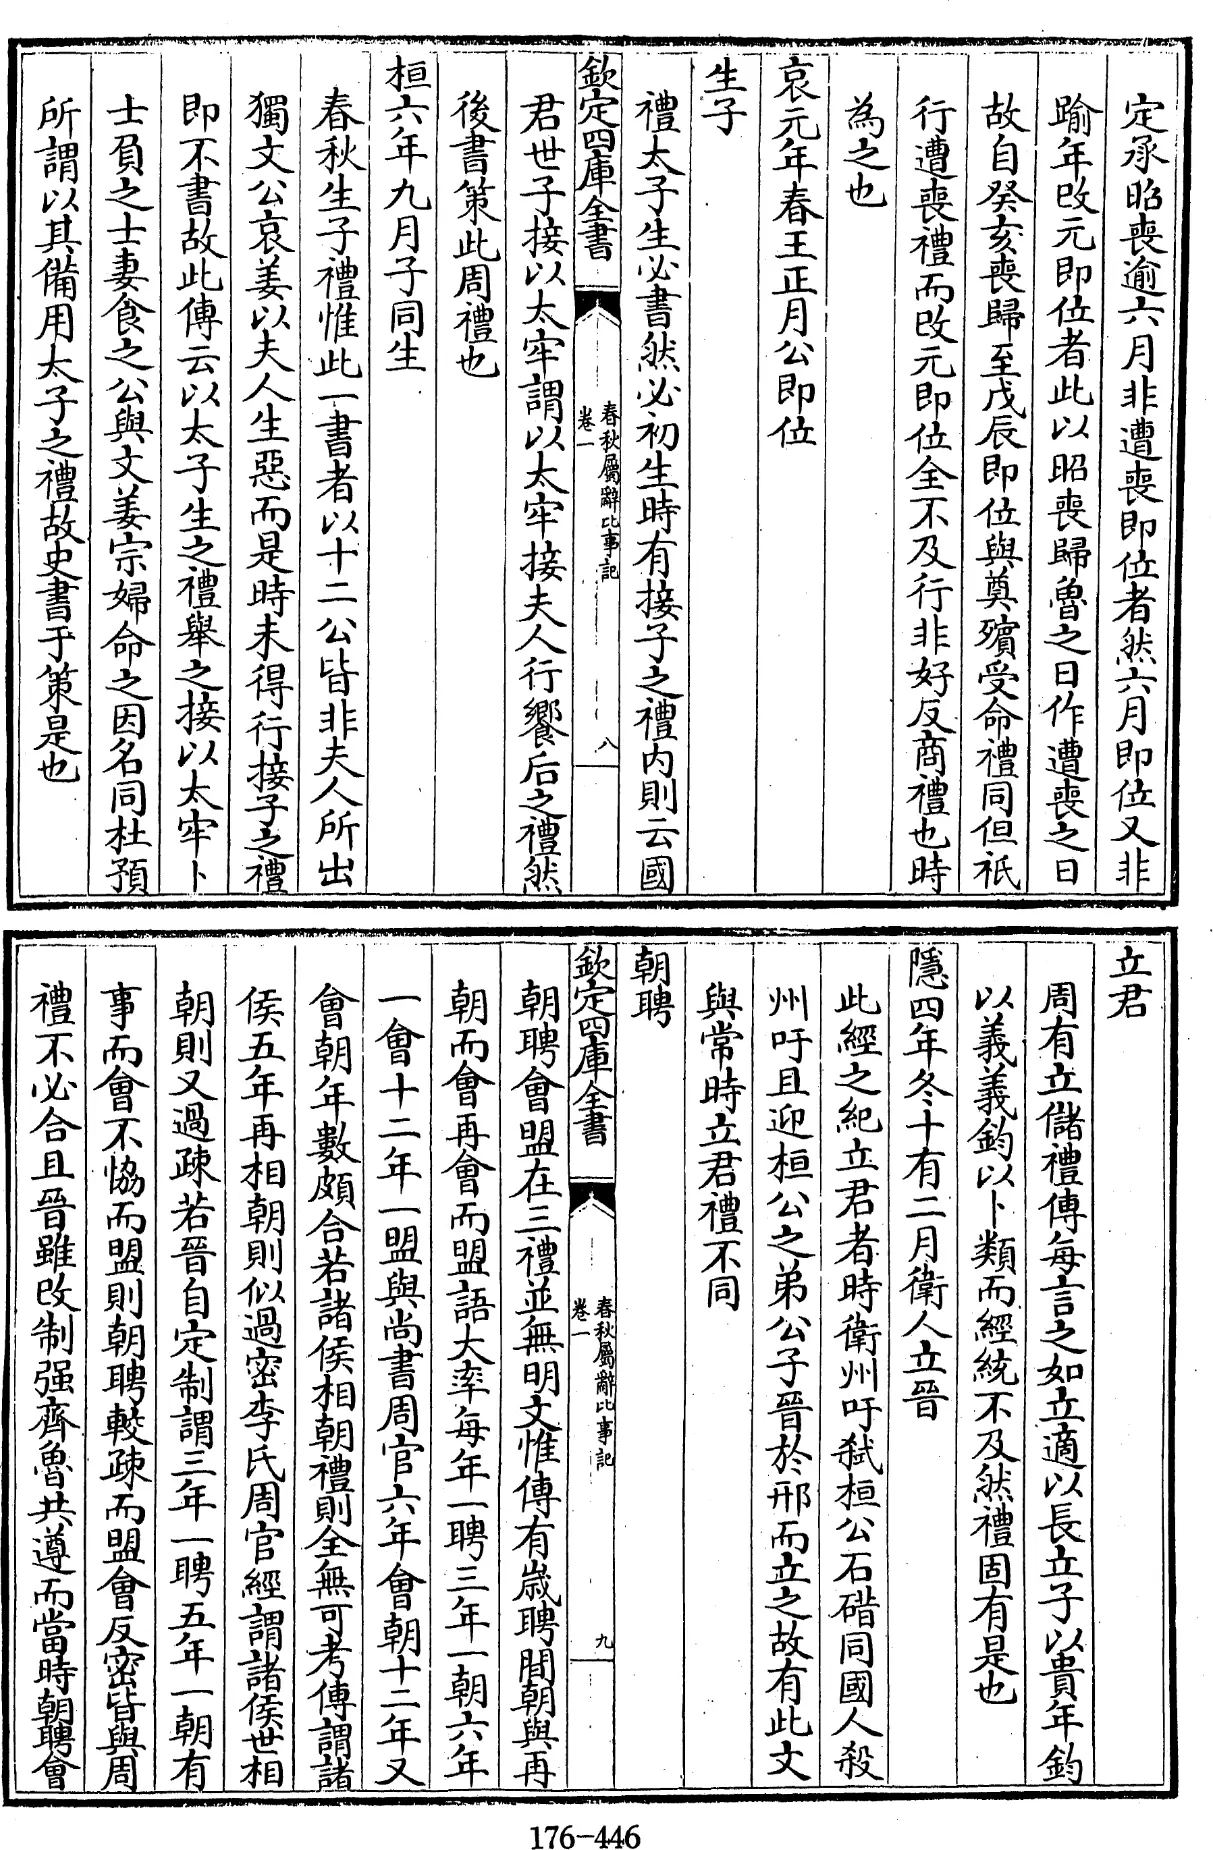 定承昭喪逾六月非遭喪即位者然六月即位又非
踰年改元即位者此以昭喪歸魯之日作遭喪之日
故自癸亥喪歸至戊辰即位與奠殯受命禮同但祇
行遭喪禮而改元即位全不及行非好反商禮也時
為之也
哀元年春王正月公即位
生子
禮太子生必書然必初生時有接子之禮内則云國
欽定四庫全書
春秋屬辭比事記
卷一
八
君世子接以太牢謂以太牢接夫人行饗后之禮然
後書策此周禮也
桓六年九月子同生
春秋生子禮惟此一書者以十二公皆非夫人所出
獨文公哀姜以夫人生惡而是時未得行接子之禮
即不書故此傳云以太子生之禮舉之接以太牢卜
士負之士妻食之公與文姜宗婦命之因名同杜預
所謂以其備用太子之禮故史書于策是也
立君
周有立儲禮傳每言之如立適以長立子以貴年鈞
以義義鈞以卜類而經統不及然禮固有是也
隱四年冬十有二月衛人立晉
此經之紀立君者時衛州吁弑桓公石碏同國人殺
州吁且迎桓公之弟公子晉於邢而立之故有此文
與常時立君禮不同
朝聘
欽定四庫全書
春秋屬辭比事記
卷一
九
朝聘會盟在三禮並無明文惟傳有歲聘間朝與再
朝而會再會而盟語大率每年一聘三年一朝六年
一會十二年一盟與尚書周官六年會朝十二年又
會朝年數頗合若諸侯相朝禮則全無可考傳謂諸
侯五年再相朝則似過密李氏周官經謂諸侯世相
朝則又過疎若晉自定制謂三年一聘五年一朝有
事而會不協而盟則朝聘較疎而盟會反密皆與周
禮不必合且晉雖改制强齊魯共遵而當時朝聘會
176-446